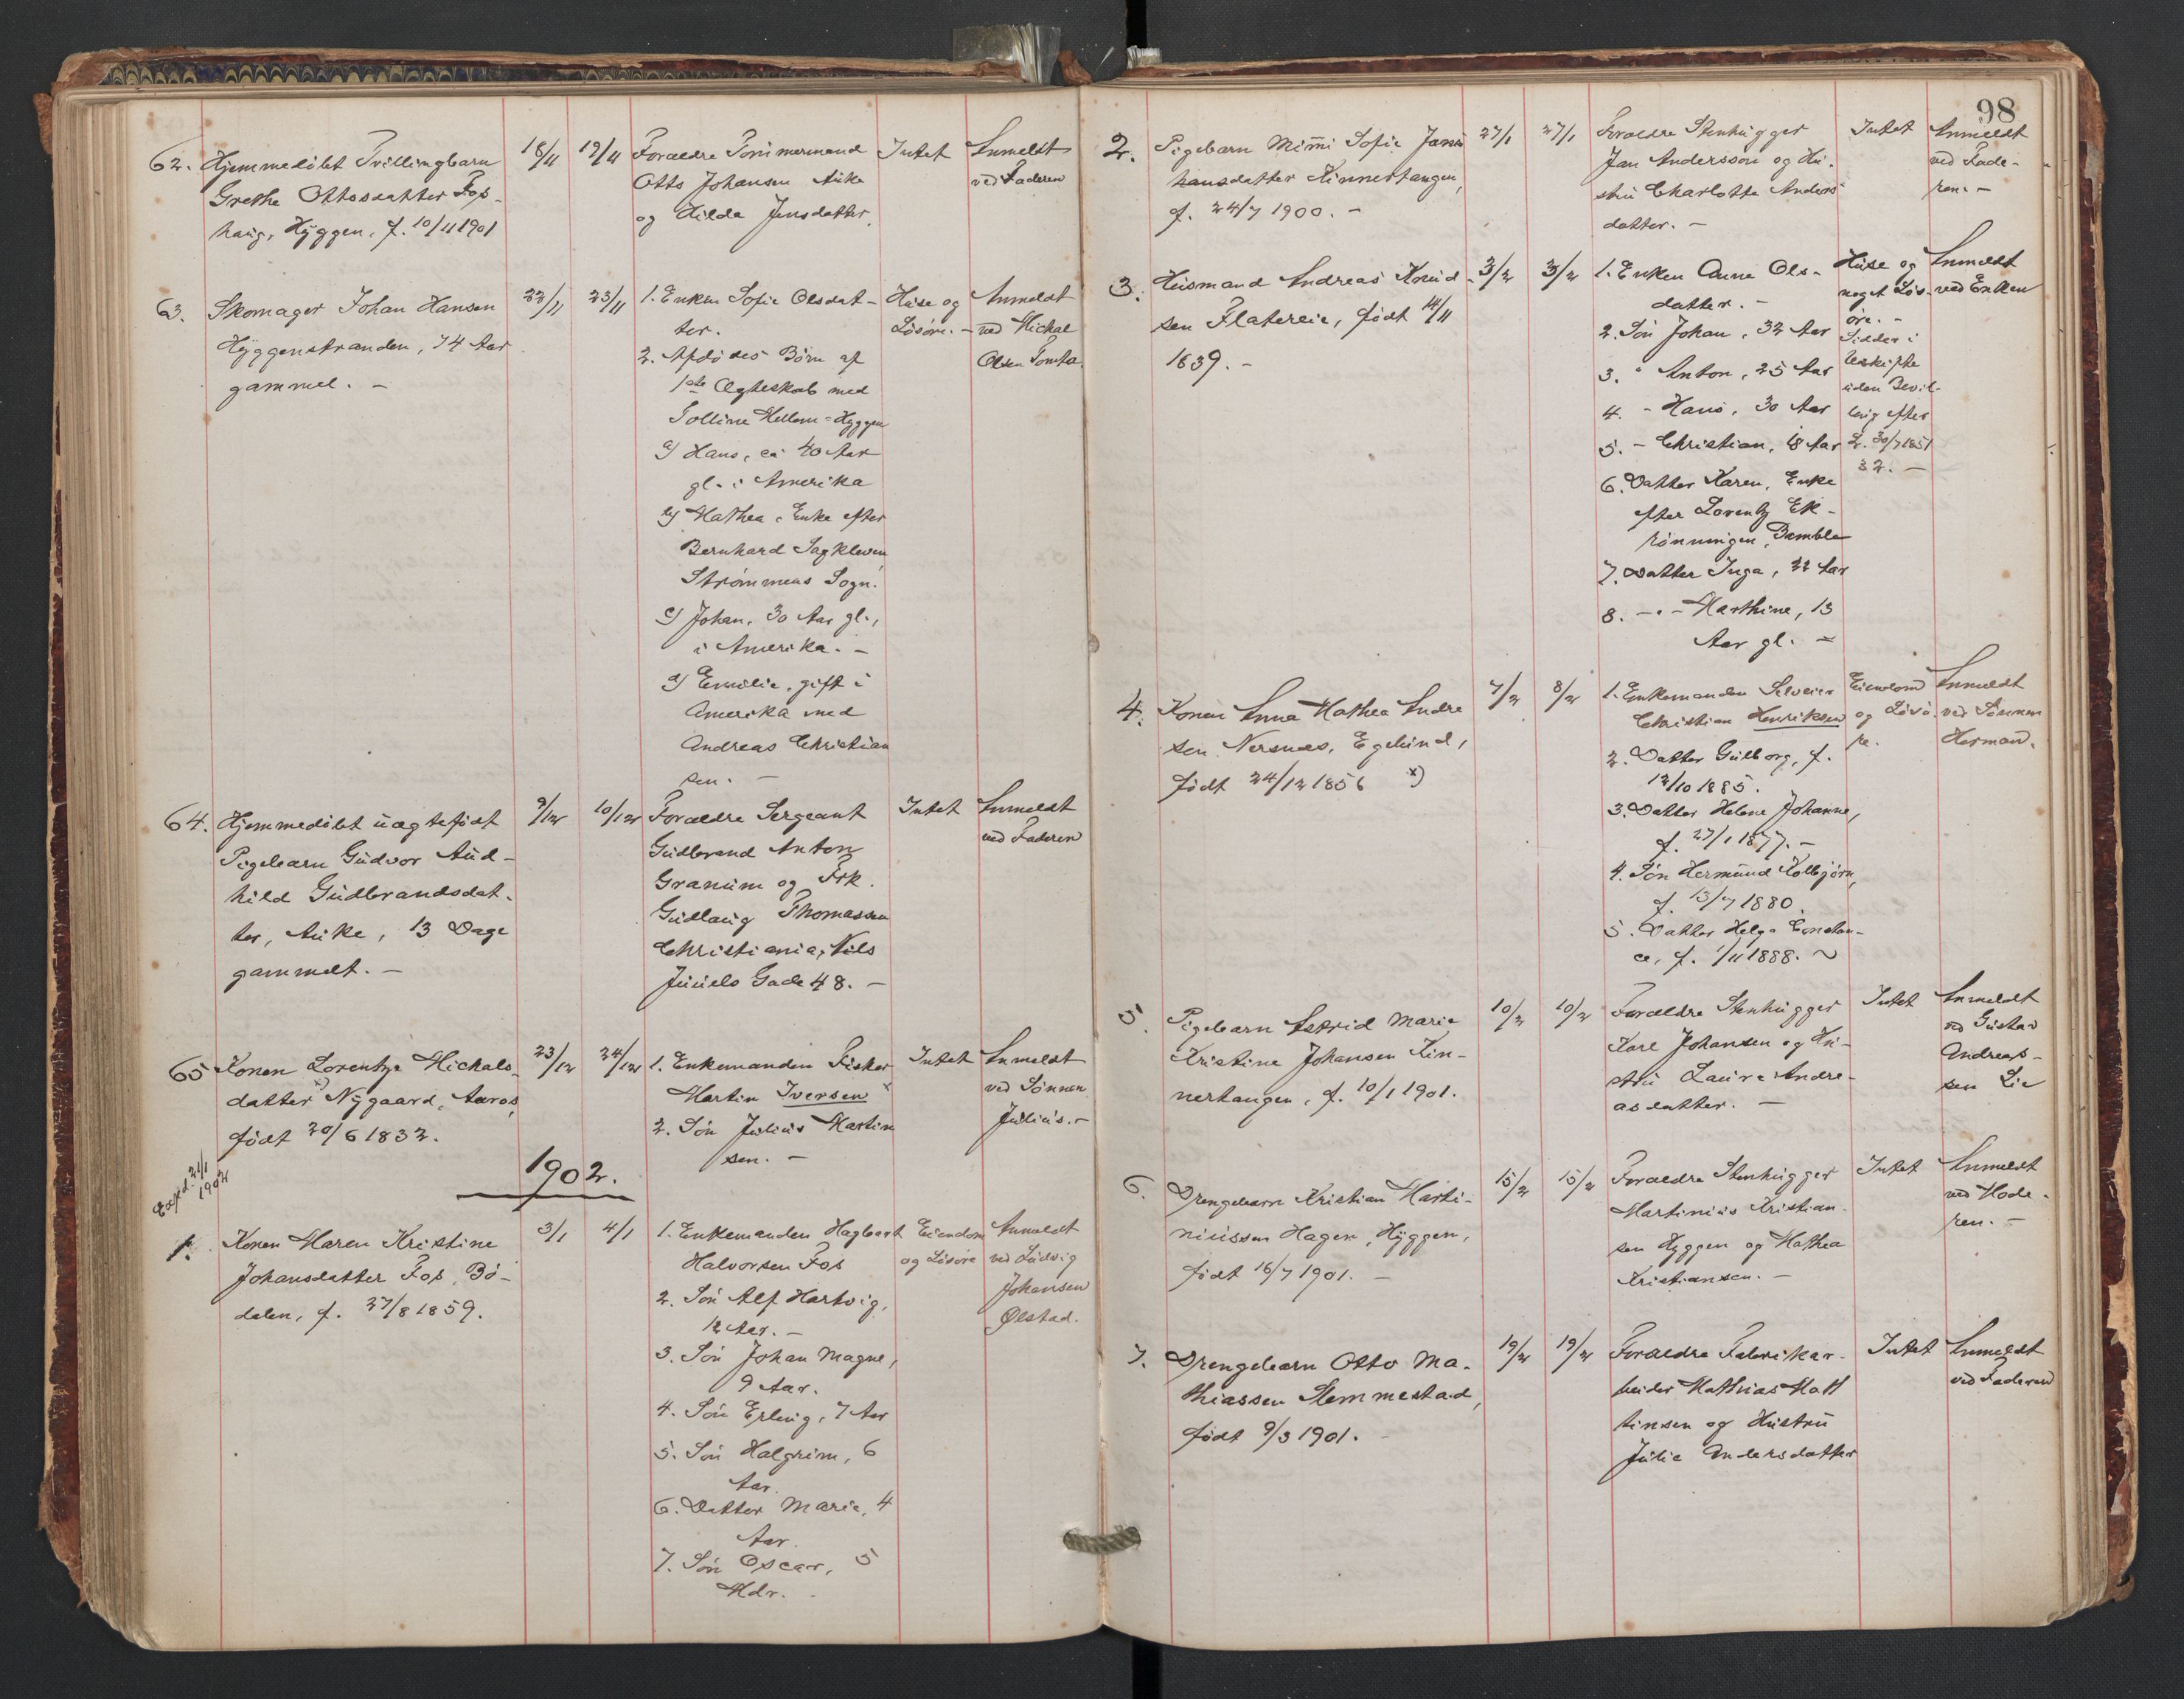 62. Hjemmedöbt Tvillingbarn
Grethe Ottosdatter Fos-
haug, Hyggen, f. 10/11 1901
18/11
19/11
Foraeldre Tömmermand
Otto Johansen Auke
og Hilda Jensdatter.
Intet
Anmeldt
ved Faderen
63. Skomager Johan Hansen
Hyggenstranden, 74 Aar
gammel. -
22/11
23/11
1. Enken Sofie Olsdat-
ter.
2. Afdödes Börn af
1ste Ægteskab med
Golline Hellum-Hyggen
a) Hans, ca 40 Aar
gl. i Amerika
b) Mathea, Enke efter
Bernhard Sagkleven
Strömmens Sogn.
c) Johan, 30 Aar gl.,
i Amerika. -
d) Emilie, gift i
Amerika med
Andreas Christian
sen. -
Huse og
Lösöre. -
Anmeldt
ved Michal
Olsen
64. Hjemmedöbt uægtefödt
Pigebarn Gudvor Aud-
hild Gudbrandsdat-
ter, Auke, 13 Dage
gammelt. -
9/12
10/12
Foraeldre Sergeant
Gudbrand Anton
Granum og Frk.
Gudlaug Thomassen
Christiania, Nils
Juuels Gade 48. -
Intet
Anmeldt
ved Faderen
65 Konen Lorentze Michals-
datter x) Nygaard, Aaros,
födt 20/6 1832.
23/12
24/12
1. Enkemanden Fisker
Martin Iversen x
2. Sön Julius Martin
sen. -
Intet
Anmeldt
ved Sönnen
Julius. -
Exped. 21/1
1902
1902.
1. Konen Maren Kristine
Johansdatter Fos, Bö-
dalen, f. 27/8 1859.
3/1
4/1
1. Enkemanden Hagbart
Halvorsen Fos
2. Sön Alf Hartvig,
12 Aar. -
3. Sön Johan Magne,
9 Aar.
4. Sön Erling, 7 Aar
5. Sön Halgrim, 6
Aar.
6. Datter Marie, 4
Aar.
7. Sön Oscar, 5
Mdr.
Eiendom
og Lösöre
Anmeldt
ved Ludvig
Johansen
Ølstad.
98
2. Pigebarn Mimi Sofie Jans
hansdatter Kinnertangen,
f. 24/7 1900. -
27/1
27/1
Foraeldre Stenhugger
Jan Andersson og Hu-
stru Charlotte Anders
datter. -
Intet
Anmeldt
ved Fade-
ren. -
3. Husmand Andreas Knud-
sen Flatereie, födt 14/11
1839. -
3/2
3/2
1. Enken Anne Ols-
datter. -
2. Sön Johan, 32 Aar
3. " Anton, 25 Aar
4. - Hans, 30 Aar
5. - Christian, 18 Aar
6. Datter Karen, Enke
efter Lorentz Ek-
rönningen, Bamble
7. Datter Inga, 22 Aar
8. -"- Marthine, 13
Aar gl. -
Huse og
noget Lös-
öre. -
Sidder i
Uskifte
uden Bevil-
ling efter
L. 30/7 1851
32. -
Anmeldt
ved Enken
4. Konen Anna Mathea Andre
sen Nersnæs, Egelund,
födt 24/12 1856 x)
7/2
8/2
1. Enkemanden Selveier
Christian Henriksen
2. Datter Gulborg, f.
12/10 1885.
3. Datter Helene Johanne,
f. 27/1 1877. -
4. Sön Hermund Kolbjörn,
f. 13/7 1880.
5. Datter Helga Constan-
ce, f. 1/11 1888.
Eiendom
og Lösö
re.
Anmeldt
ved Sönnen
Hermand.
5. Pigebarn Astrid Marie
Kristine Johansen Kin-
nertangen, f. 10/1 1901.
10/2
10/2
Foraeldre Stenhugger
Karl Johansen og Hu-
stru Laura Andre-
asdatter. -
Intet
Anmeldt
ved Gustav
Andreas-
sen Lie
6. Drengebarn Kristian Marti-
niussen Hagen, Hyggen,
födt 16/7 1901. -
15/2
15/2
Foraeldre Stenhugger
Martinius Kristian-
sen Hyggen og Mathea
Kristiansen. -
Intet
Anmeldt
ved Mode-
ren. -
7. Drengebarn Otto Ma-
thiassen Slemmestad,
födt 9/3 1901.
19/2
19/2
Foraeldre Fabrikar-
beider Mathias Matt
tinsen og Hustru
Julie Andersdatter
Intet
Anmeldt
ved Faderen